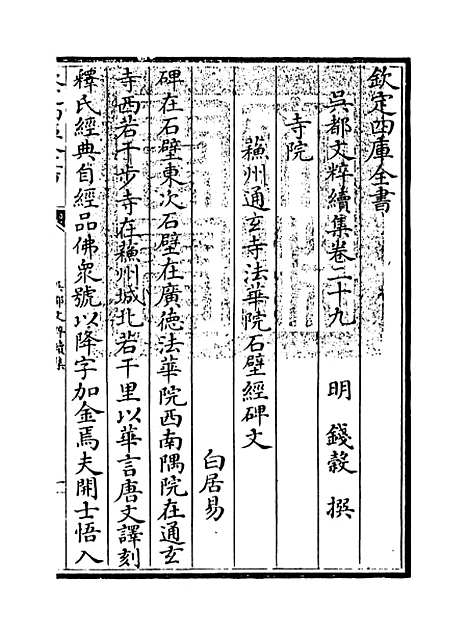 欽定四庫全書
吳都文粹續集卷二十九
明 錢穀 撰
寺院
蘓州通玄寺法華院石壁經碑文
白居易
碑在石壁東次石壁在廣徳法華院西南隅院在通玄
寺西若干步寺在蘓州城北若干里以華言唐文譯刻
釋氏經典自經品佛衆號以降字加金焉夫開士悟入
吳都文粹續集